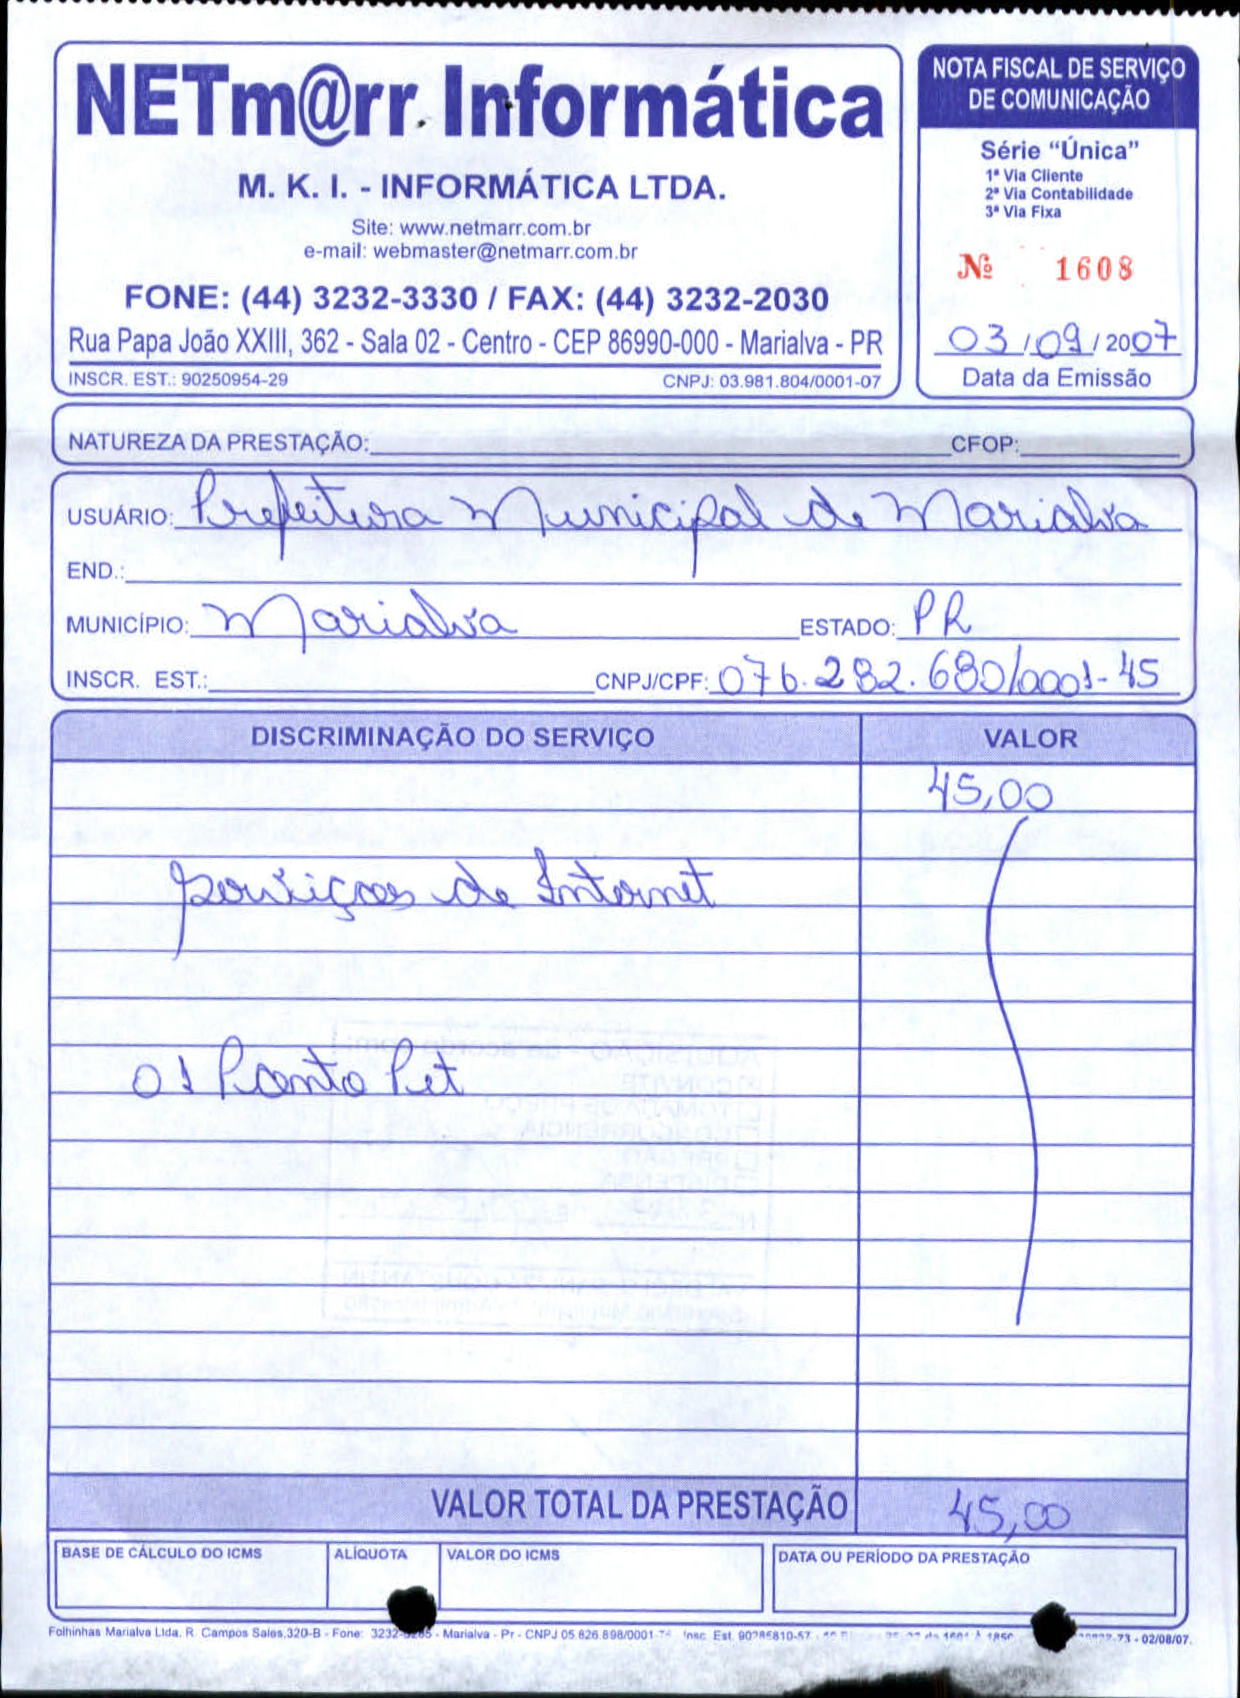 NETm@rr Informática
M. K. I. - INFORMÁTICA LTDA.
Site: www.netmarr.com.br
e-mail: webmaster@netmarr.com.br
FONE: (44) 3232-3330 / FAX: (44) 3232-2030
Rua Papa João XXIII, 362 - Sala 02 - Centro - CEP 86990-000 - Marialva - PR
INSCR. EST.: 90250954-29 CNPJ: 03.981.804/0001-07
NOTA FISCAL DE SERVIÇO
DE COMUNICAÇÃO
Série "Única"
1ª Via Cliente
2ª Via Contabilidade
3ª Via Fixa
Nº 1608
03/09/2007
Data da Emissão
NATUREZA DA PRESTAÇÃO: CFOP:
USUÁRIO: Prefeitura Municipal de Marialva
END.:
MUNICÍPIO: Marialva ESTADO: PR
INSCR. EST.: CNPJ/CPF: 076.282.680/0001-45
DISCRIMINAÇÃO DO SERVIÇO VALOR
45,00
serviços de Internet
01 Ponto Pet
VALOR TOTAL DA PRESTAÇÃO 45,00
BASE DE CÁLCULO DO ICMS ALÍQUOTA VALOR DO ICMS DATA OU PERÍODO DA PRESTAÇÃO
Folhinhas Marialva Ltda. R. Campos Sales,320-B - Fone: - Marialva - Pr - CNPJ 05.826.898/0001 Insc. Est. 90285810-57 - 02/08/07.